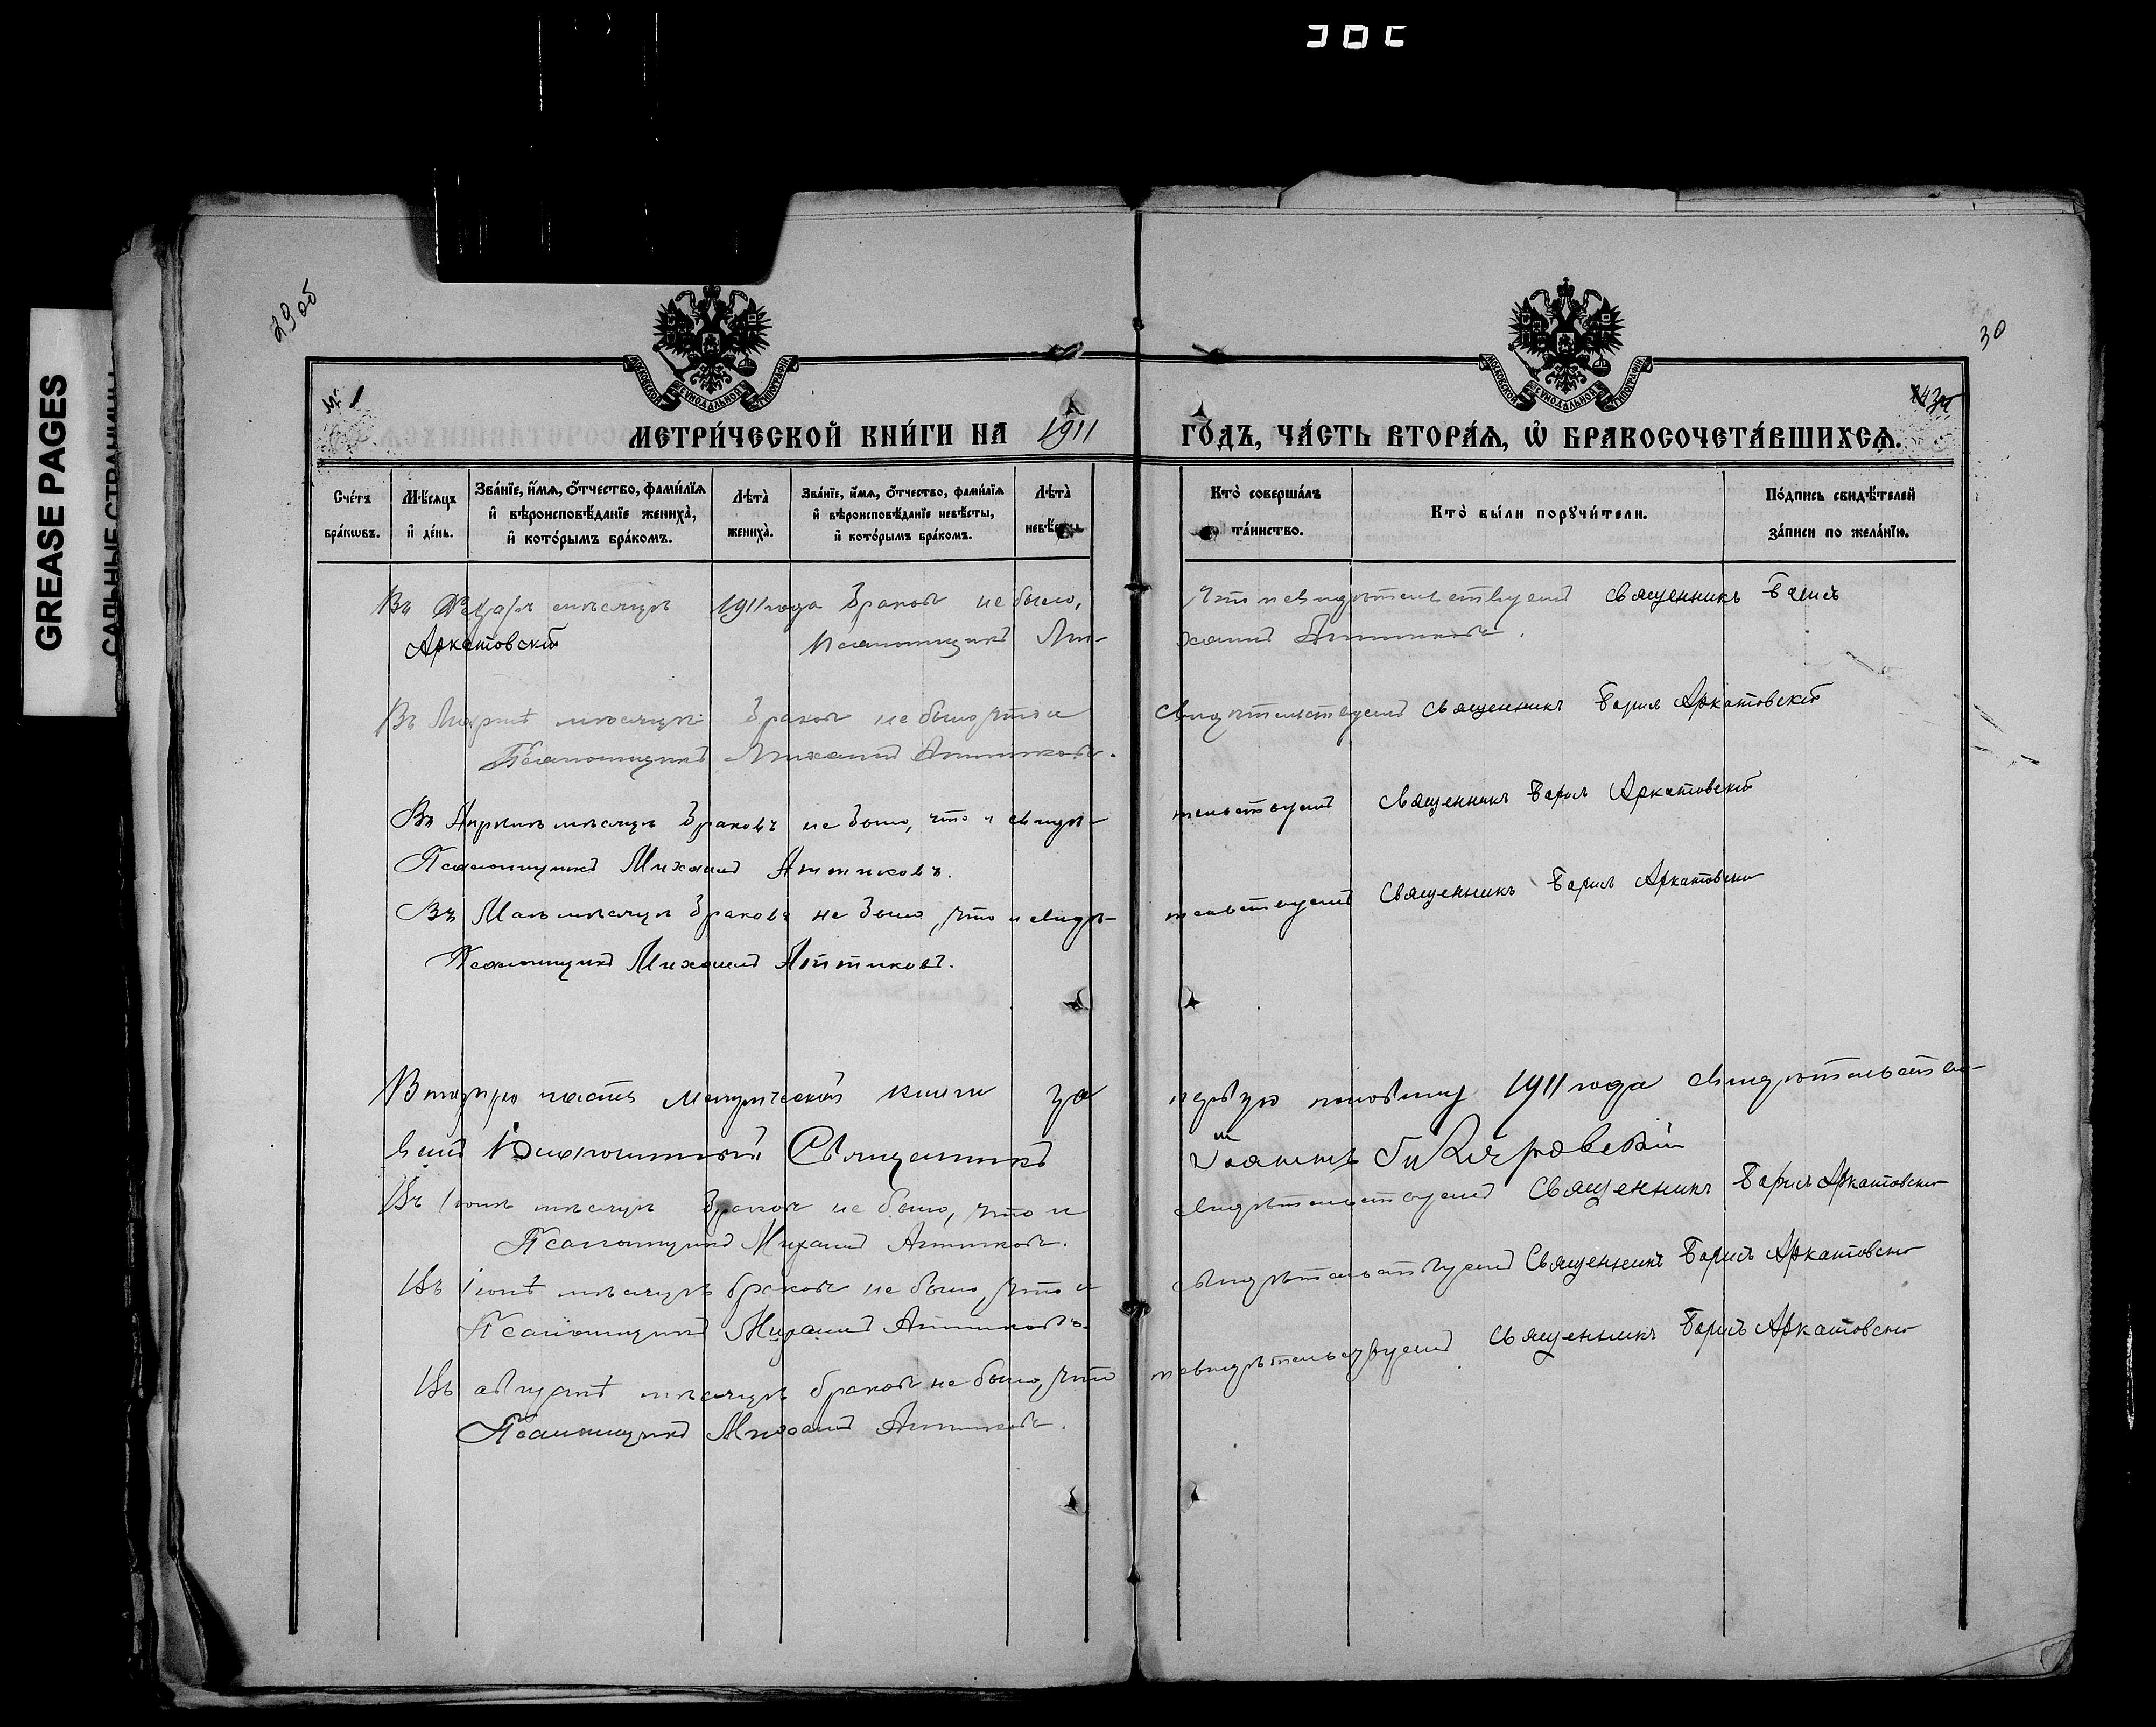 GREASE PAGES
САЛЬНЫЕ СТРАНИЦЫ
29 об
30
№ 1
МОСКОВСКОЙ СѴНОДАЛЬНОЙ ТИПОГРАФІИ
МОСКОВСКОЙ СѴНОДАЛЬНОЙ ТИПОГРАФІИ
МЕТРИ́ЧЕСКОЙ КНИ́ГИ НА 1911 ГО́ДЪ, ЧА́СТЬ ВТОРА́Я, Ѽ БРАКОСОЧЕТА́ВШИХСЯ.
Сче́тъ бра́кѡвъ.
Мѣ́сяцъ и҆ де́нь.
Зва́нїе, и҆́мя, ѻ҆́тчество, фами́лїя и҆ вѣроисповѣ́данїе жениха̀, и҆ кото́рымъ бра́комъ.
Лѣта̀ жениха̀.
Зва́нїе, и҆́мя, ѻ҆́тчество, фами́лїя и҆ вѣроисповѣ́данїе невѣ́сты, и҆ кото́рымъ бра́комъ.
Лѣта̀ невѣ́сты
Кто̀ соверша́лъ та́инство.
Кто̀ бы́ли порꙋчи́тели.
По́дпись свидѣ́телей за́писи по жела́нїю.
Въ мѣсяцѣ 1911 года браковъ не было, что и свидѣтельствуемъ Священникъ Борисъ
Аркатовскій Псаломщикъ Михаилъ Аттиковъ.
Въ Мартѣ мѣсяцѣ браковъ не было, что и свидѣтельствуемъ Священникъ Борисъ Аркатовскій
Псаломщикъ Михаилъ Аттиковъ.
Въ Апрѣлѣ мѣсяцѣ браковъ не было, что и свидѣтельствуемъ Священникъ Борисъ Аркатовскій
Псаломщикъ Михаилъ Аттиковъ.
Въ Маѣ мѣсяцѣ браковъ не было, что и свидѣтельствуемъ Священникъ Борисъ Аркатовскій
Псаломщикъ Михаилъ Аттиковъ.
Вторую часть метрической книги за первую половину 1911 года свидѣтельство-
валъ Благочинный Священникъ Іоаннъ
Въ Іюнѣ мѣсяцѣ браковъ не было, что и свидѣтельствуемъ Священникъ Борисъ Аркатовскій
Псаломщикъ Михаилъ Аттиковъ.
Въ Іюлѣ мѣсяцѣ браковъ не было, что и свидѣтельствуемъ Священникъ Борисъ Аркатовскій
Псаломщикъ Михаилъ Аттиковъ.
Въ августѣ мѣсяцѣ браковъ не было, что и свидѣтельствуемъ Священникъ Борисъ Аркатовскій
Псаломщикъ Михаилъ Аттиковъ.